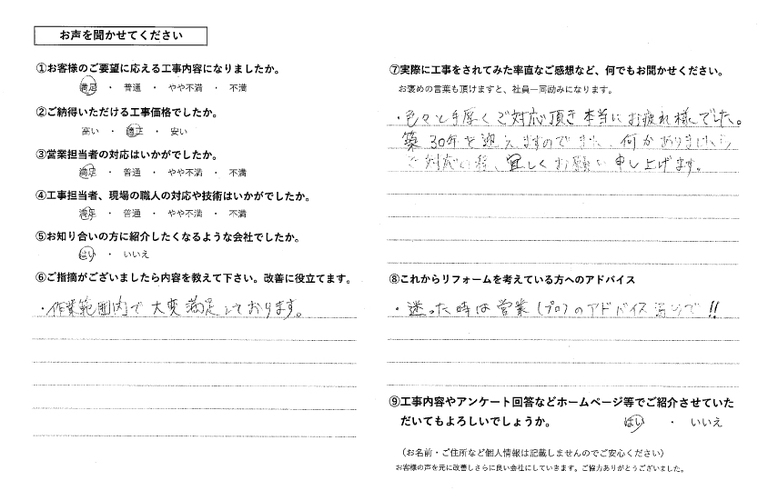 お声を聞かせてください
①お客様のご要望に応える工事内容になりましたか。
満足 ・ 普通 ・ やや不満 ・ 不満
②ご納得いただける工事価格でしたか。
高い ・ 適正 ・ 安い
③営業担当者の対応はいかがでしたか。
満足 ・ 普通 ・ やや不満 ・ 不満
④工事担当者、現場の職人の対応や技術はいかがでしたか。
満足 ・ 普通 ・ やや不満 ・ 不満
⑤お知り合いの方に紹介したくなるような会社でしたか。
はい ・ いいえ
⑥ご指摘がございましたら内容を教えて下さい。改善に役立てます。
・作業範囲内で大変満足しております。
⑦実際に工事をされてみた率直なご感想など、何でもお聞かせください。
お褒めの言葉も頂けますと、社員一同励みになります。
・色々と手厚くご対応頂き本当にお疲れ様でした。
築30年を迎えますのでまた、何かありましたら
ご対応の程、宜しくお願い申し上げます。
⑧これからリフォームを考えている方へのアドバイス
・迷った時は営業(プロ)のアドバイス
⑨工事内容やアンケート回答などホームページ等でご紹介させていた
だいてもよろしいでしょうか。 はい ・ いいえ
(お名前・ご住所など個人情報は記載しませんのでご安心ください)
お客様の声を元に改善しさらに良い会社にしていきます。ご協力ありがとうございました。